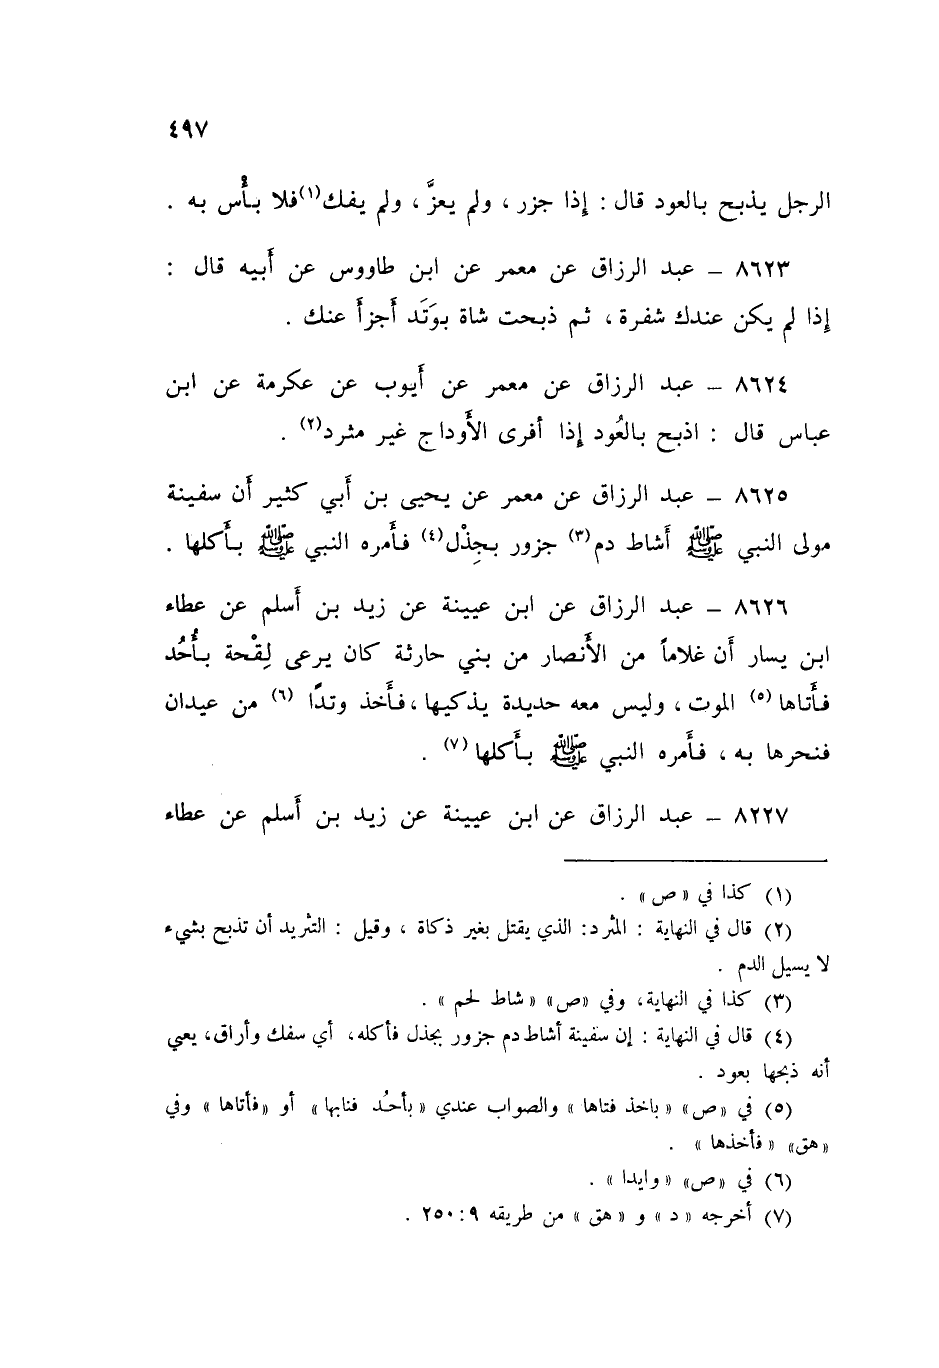 ٤٩٧
الرجل يذبح بالعود قال : إذا جزر ، ولم يعزَّ ، ولم يفك(١) فلا بأْس به .
٨٦٢٣ – عبد الرزاق عن معمر عن ابن طاووس عن أَبيه قال :
إذا لم يكن عندك شفرة ، ثم ذبحت شاة بوَتَد أَجزأَ عنك .
٨٦٢٤ – عبد الرزاق عن معمر عن أَيوب عن عكرمة عن ابن
عباس قال : اذبح بالعُود إذا أفرى الأَوداج غير مثرد(٢) .
٨٦٢٥ – عبد الرزاق عن معمر عن يحيى بن أَبي كثير أَن سفينة
مولى النبي ﷺ أَشاط دم(٣) جزور بجِذْل(٤) فأَمره النبي ﷺ بأَكلها .
٨٦٢٦ – عبد الرزاق عن ابن عيينة عن زيد بن أَسلم عن عطاء
ابن يسار أَن غلاماً من الأَنصار من بني حارثة كان يرعى لِقْحة بأُحُد
فأَتاها(٥) الموت ، وليس معه حديدة يذكيها ، فأَخذ وتدًا(٦) من عيدان
فنحرها به ، فأَمره النبي ﷺ بأَكلها(٧) .
٨٢٢٧ – عبد الرزاق عن ابن عيينة عن زيد بن أَسلم عن عطاء
(١) كذا في « ص » .
(٢) قال في النهاية : المثرد: الذي يقتل بغير ذكاة ، وقيل : التثريد أن تذبح بشيء
لا يسيل الدم .
(٣) كذا في النهاية، وفي «ص» « شاط لحم » .
(٤) قال في النهاية : إن سفينة أشاط دم جزور بجذل فأكله، أي سفك وأراق، يعني
أنه ذبحها بعود .
(٥) في «ص» « باخذ فتاها » والصواب عندي « بأحُد فنابها » أو «فأتاها » وفي
«هق» « فأخذها » .
(٦) في «ص» « وايدا » .
(٧) أخرجه « د » و « هق » من طريقه ٩ : ٢٥٠ .